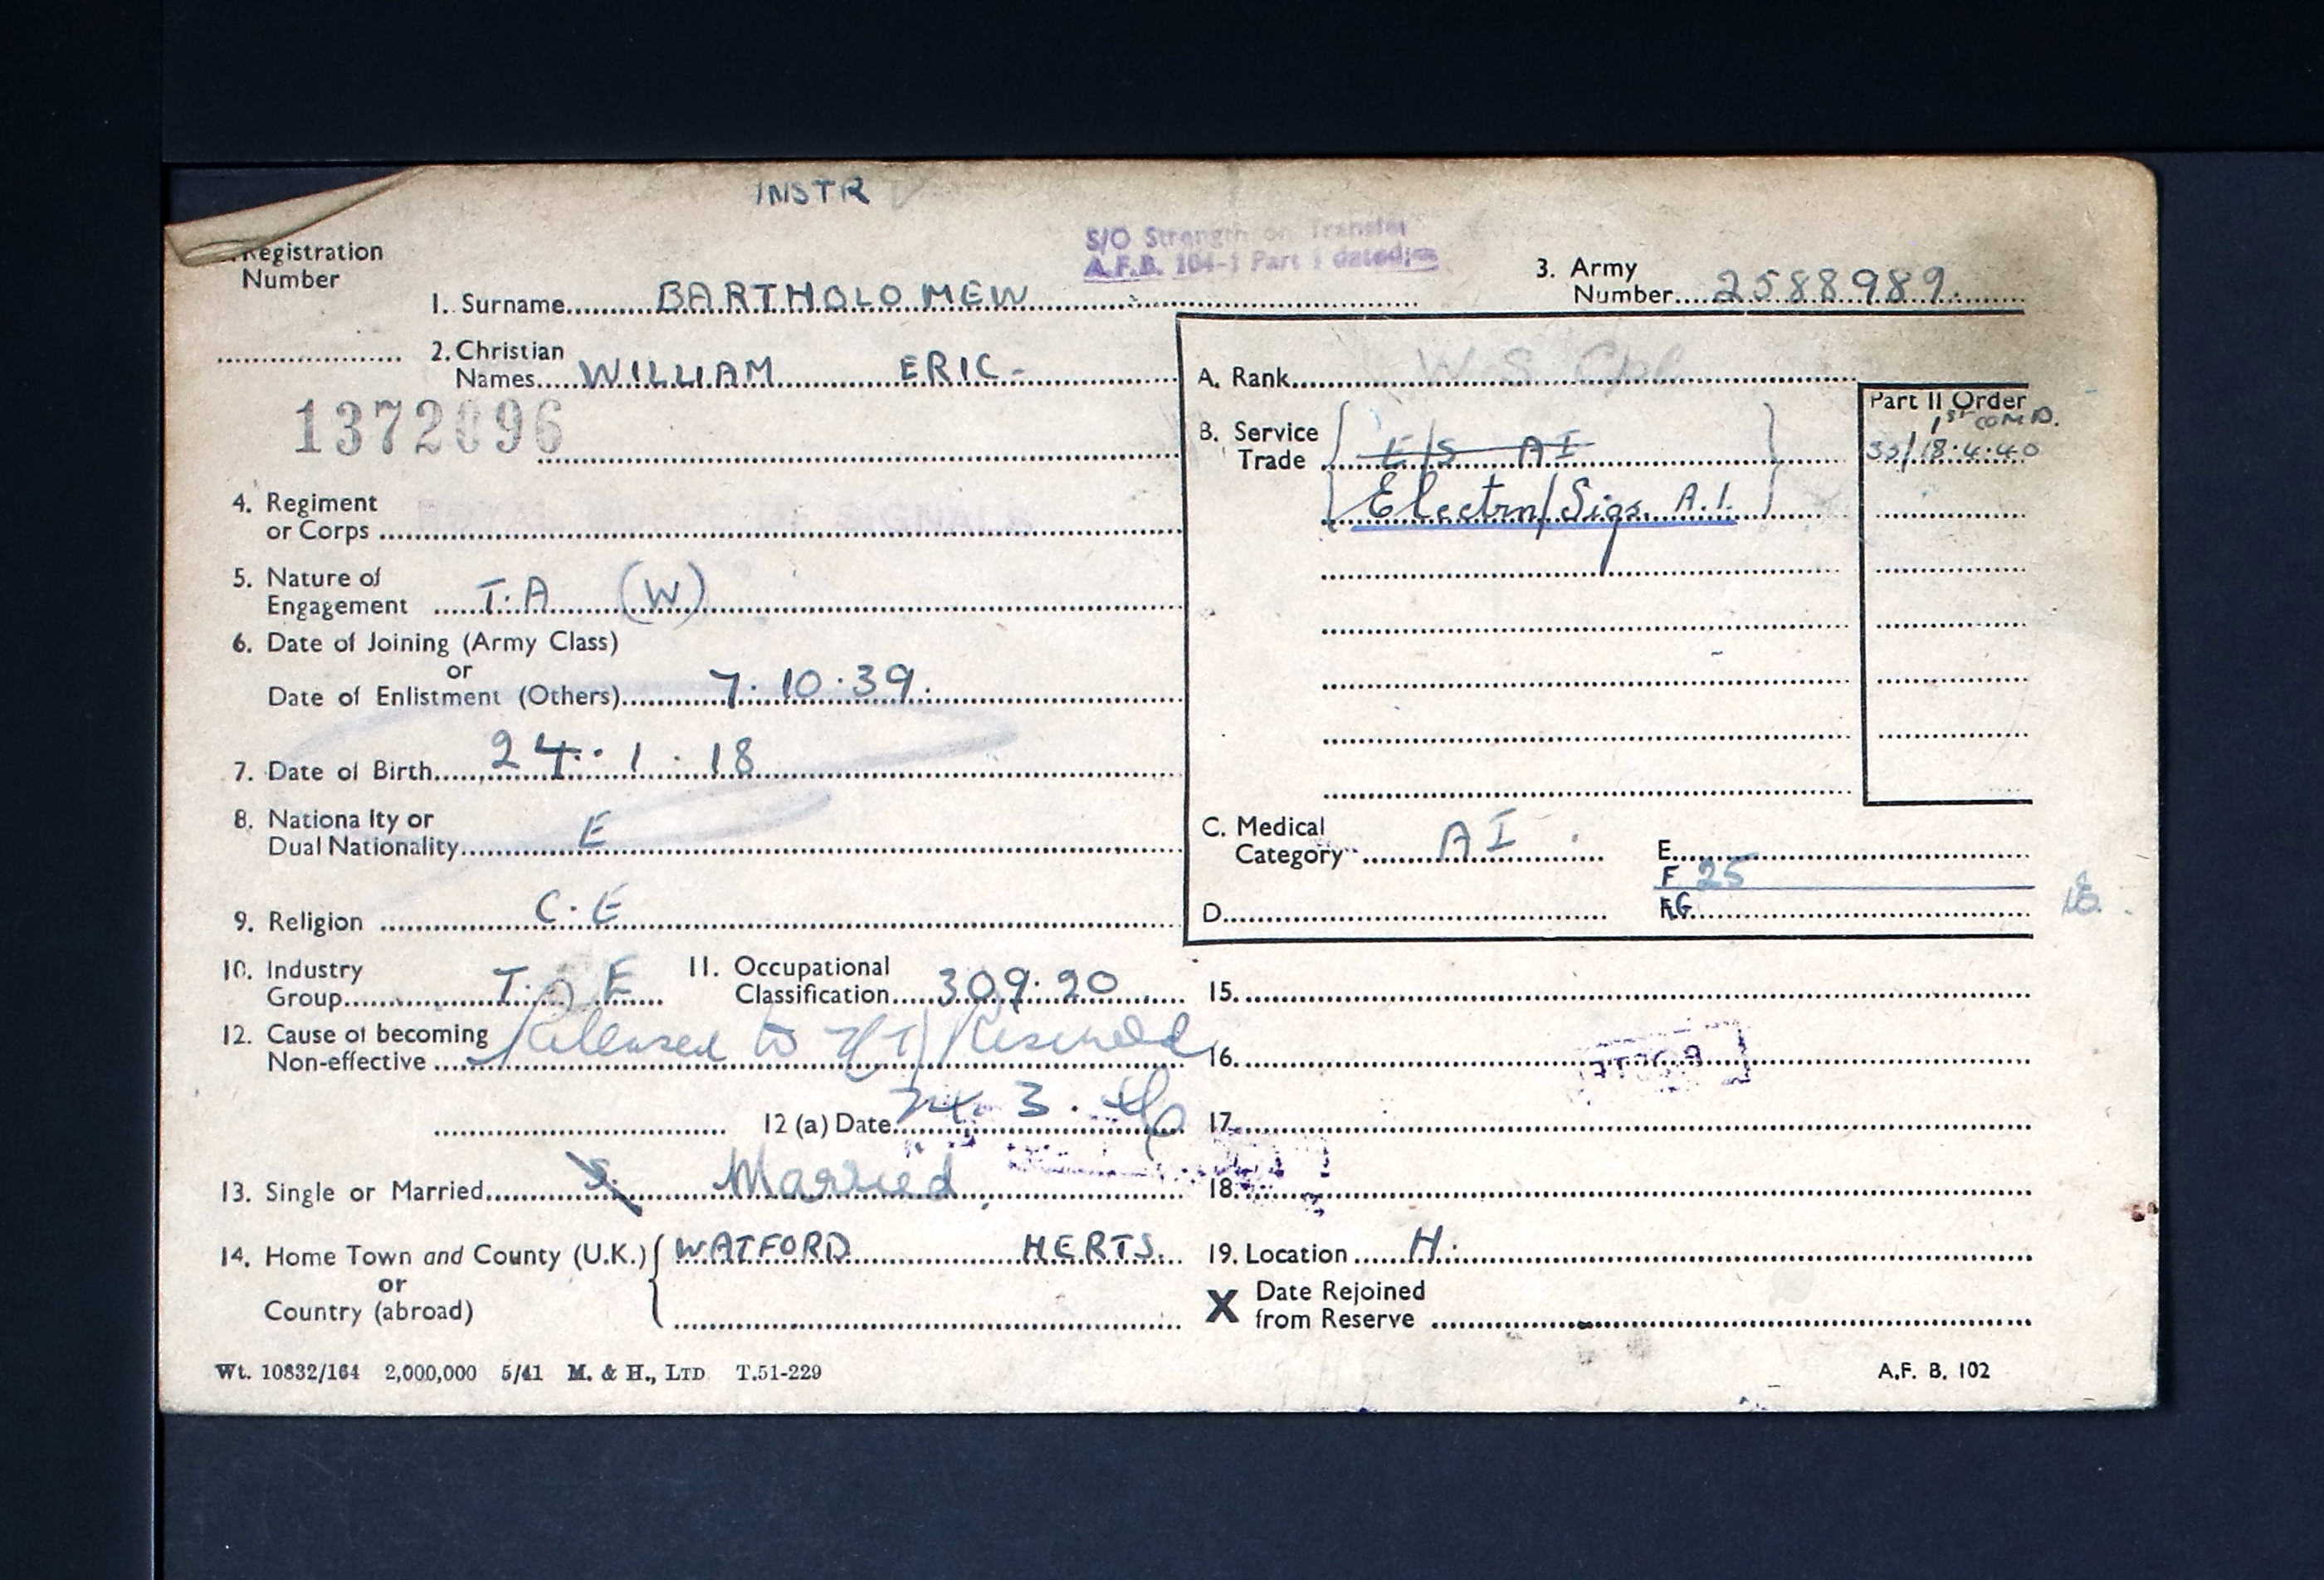 INSTR
Registration
Number
S/O Strength on Transfer
A.F.B. 104-1 Part I dated
3. Army
Number 2588989
1. Surname BARTHOLOMEW
2. Christian
Names WILLIAM ERIC
A. Rank W.S. Cpl
1372096
B. Service
Trade E/S AI
Electrn/Sigs. A.I.
Part II Order
1st COMD.
33/18.4.40
4. Regiment
or Corps
5. Nature of
Engagement T.A (W)
6. Date of Joining (Army Class)
or
Date of Enlistment (Others) 7.10.39.
7. Date of Birth 24.1.18
8. Nationality or
Dual Nationality E
C. Medical
Category AI
E
F 25
9. Religion C.E
D
G
10. Industry
Group
11. Occupational
Classification 309.20
15.
12. Cause of becoming
Non-effective Released to
16.
12 (a) Date 24.3.46
17.
13. Single or Married S. Married
18.
14. Home Town and County (U.K.) WATFORD HERTS.
or
Country (abroad)
19. Location H.
X Date Rejoined
from Reserve
Wt. 10832/164 2,000,000 5/41 M. & H., LTD T.51-229
A.F. B. 102